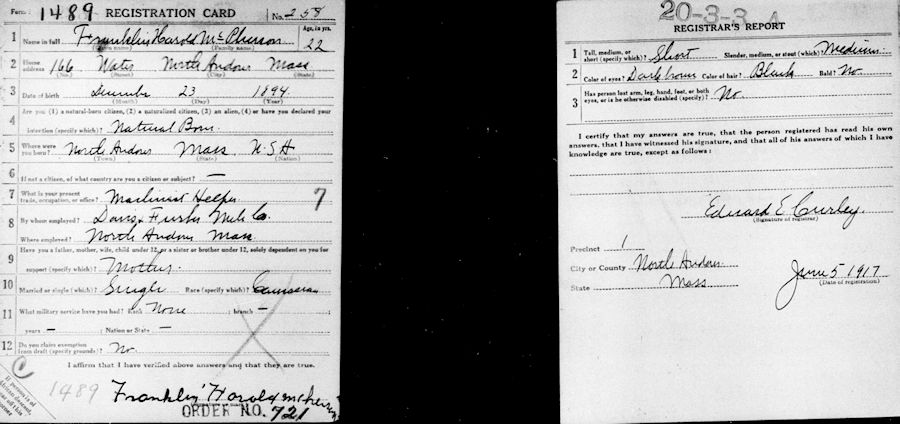 Form 1 1489 REGISTRATION CARD No. 258
1 Name in full Franklin Harold McPherson Age, in yrs. 22
(Given name) (Family name)
2 Home address 166 Water North Andover Mass
(No.) (Street) (City) (State)
3 Date of birth December 23 1894
(Month) (Day) (Year)
4 Are you (1) a natural-born citizen, (2) a naturalized citizen, (3) an alien, (4) or have you declared your
intention (specify which)? Natural Born
5 Where were you born? North Andover Mass U S A
(Town) (State) (Nation)
6 If not a citizen, of what country are you a citizen or subject? —
7 What is your present trade, occupation, or office? Machinist Helper 7
8 By whom employed? Davis & Furber Mch Co.
Where employed? North Andover Mass
9 Have you a father, mother, wife, child under 12, or a sister or brother under 12, solely dependent on you for
support (specify which)? Mother
10 Married or single (which)? Single Race (specify which)? Caucasian
11 What military service have you had? Rank None ; branch —
years — ; Nation or State —
12 Do you claim exemption from draft (specify grounds)? No.
I affirm that I have verified above answers and that they are true.
C
If person is of African descent,
1489
Franklin Harold McPherson
ORDER NO. 721
20-3-3 A
REGISTRAR'S REPORT
1 Tall, medium, or short (specify which)? Short Slender, medium, or stout (which)? Medium
2 Color of eyes? Dark brown Color of hair? Black Bald? No
3 Has person lost arm, leg, hand, foot, or both eyes, or is he otherwise disabled (specify)? No.
I certify that my answers are true, that the person registered has read his own
answers, that I have witnessed his signature, and that all of his answers of which I have
knowledge are true, except as follows:
Edward E Curley
(Signature of registrar)
Precinct 1
City or County North Andover
State Mass
June 5 1917
(Date of registration)